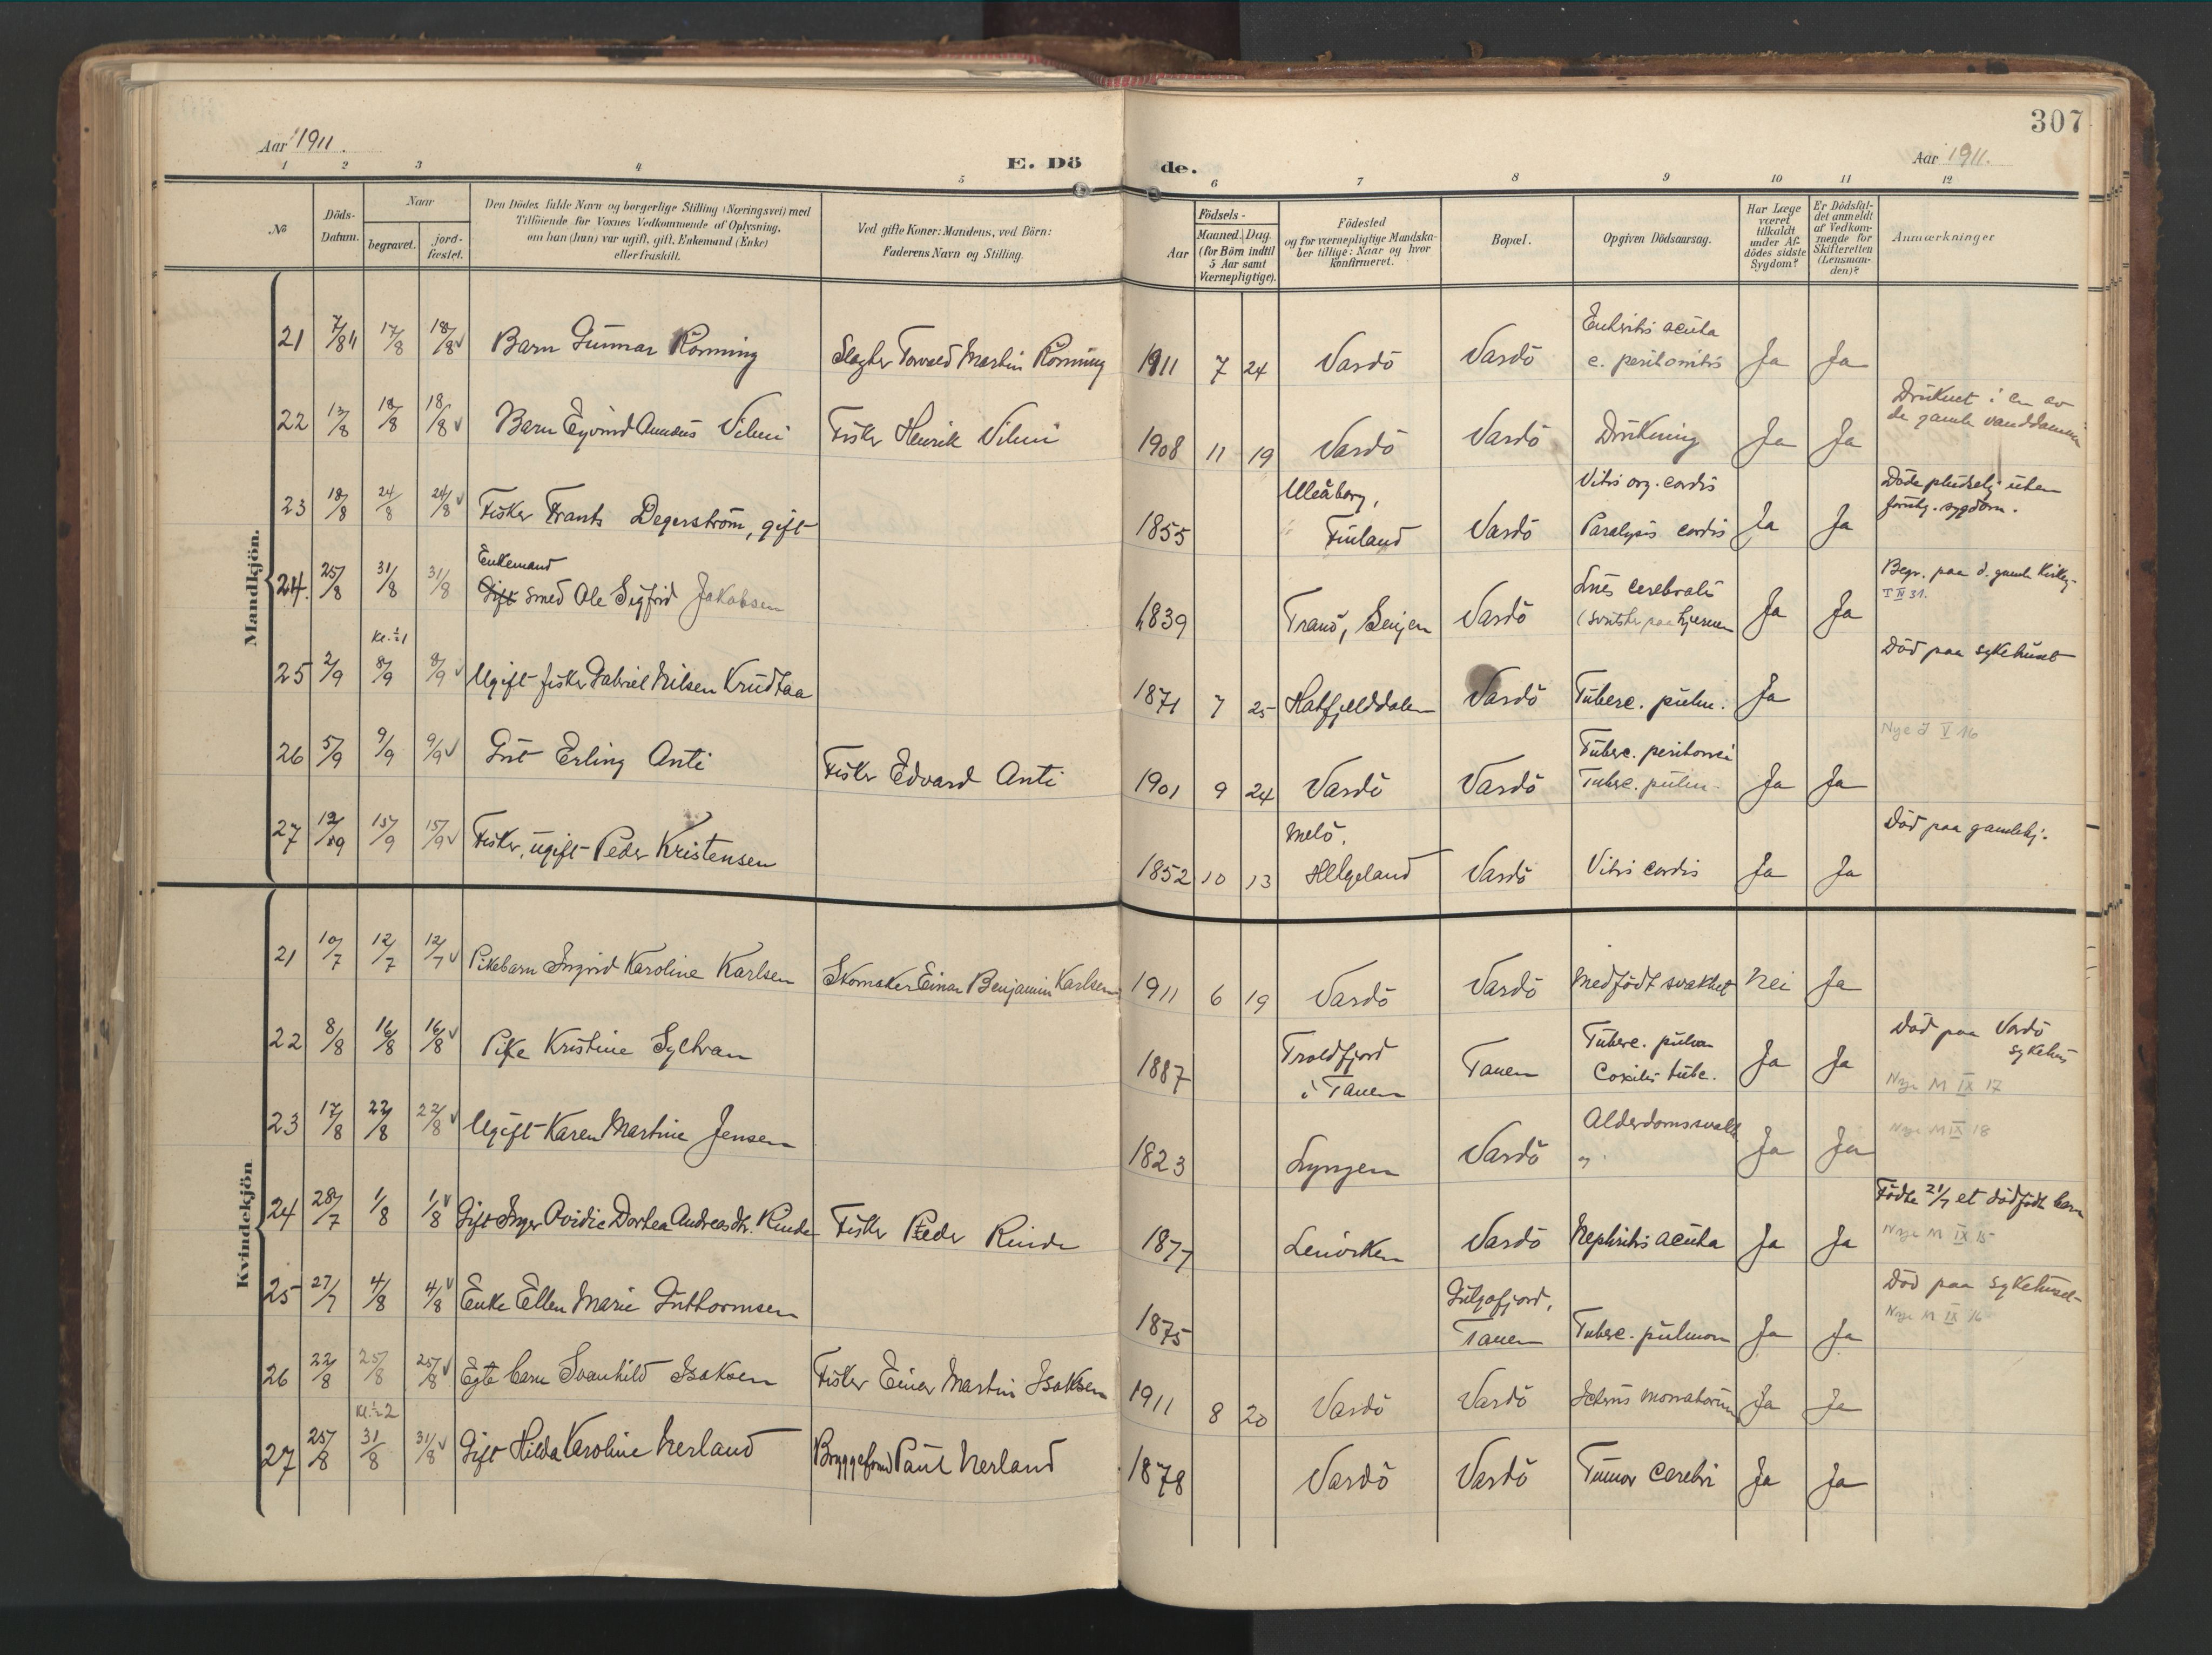 307
Aar 1911.
E. Dö
de.
Aar 1911.
1 2 3 4 5 6 7 8 9 10 11 12
No
Döds-
Datum.
Naar
begravet.
jord-
fæstet.
Den Dödes fulde Navn og borgerlige Stilling (Næringsvei) med
Tilföiende for Voxnes Vedkommende af Oplysning,
om han (hun) var ugift, gift, Enkemand (Enke)
eller fraskilt.
Ved gifte Koner: Mandens, ved Börn:
Faderens Navn og Stilling.
Födsels-
Aar
Maaned. Dag.
(for Börn indtil
5 Aar samt
Værnepligtige).
Födested
og for værnepligtige Mandska-
ber tillige: Naar og hvor
konfirmeret.
Bopæl.
Opgiven Dödsaarsag.
Har Læge
været
tilkaldt
under Af-
dödes sidste
Sygdom?
Er Dödsfal-
det anmeldt
af Vedkom-
mende for
Skifteretten
(Lensman-
den)?
Anmærkninger
Mandkjön.
21 7/8 17/8 18/8 Barn Gunnar Rönning Slagter Torvald Martin Rönning 1911 7 24 Vardö Vardö Enteritis acuta
c. peritonitis Ja Ja
22 12/8 18/8 18/8 Barn Eyvind Vilmi Fisker Henrik Vilmi 1908 11 19 Vardö Vardö Drukning Ja Ja Druknet i en av
de gamle vanddamme
23 18/8 24/8 24/8 Fisker Frants Degerström, gift 1855 Uleåborg,
Finland Vardö Vitis org. cordis
Paralysis cordis Ja Ja Döde pludselig uten
sygdom.
24. 25/8 31/8 31/8 Enkemand
Gift smed Ole Sigfrid Jakobsen 1839 Tranö, Senjen Vardö Lues cerebralis
(svulster paa hjernen Ja Ja Begr. paa d. gamle Kirkeg.
T II 31.
Kl. ½1
25 2/9 8/9 8/9 Ugift fisker Gabriel Nilsen Krudtaa 1871 7 25 Hatfjelddalen Vardö Tuberc. pulm. Ja Död paa sykehuset
26 5/9 9/9 9/9 Gut Erling Anti Fisker Edvard Anti 1901 9 24 Vardö Vardö Tuberc. peritonei
Tuberc. pulm. Ja Ja Nye J V 16
27 12/9 15/9 15/9 Fisker, ugift Peder Kristensen 1852 10 13 Melö,
Helgeland Vardö Vitis cordis Ja Ja Död paa gamlehj.
Kvindekjön
21 10/7 12/7 12/7 Pikebarn Ingrid Karoline Karlsen Skomaker Einar Benjamin Karlsen 1911 6 19 Vardö Vardö Medfödt svakhet Nei Ja
22 8/8 16/8 16/8 Pike Kristine Sylvan 1887 Troldfjord
i Tanen Tanen Tuberc. pulm
Coxitis tube. Ja Ja Död paa Vardö
sykehus
Nye M IX 17
23 17/8 22/8 22/8 Ugift Karen Martine Jensen 1823 Lyngen Vardö Alderdomssvakh Ja Ja Nye M IX 18
24 28/7 1/8 1/8 Gift Inger Ovidie Dorthea Andreasdtr. Rinde Fisker Peder Rinde 1877 Lenvirken Vardö Nephritis acuta Ja Ja Födte 21/7 et dödfödt barn
Nye M IX 15
25 27/7 4/8 4/8 Enke Ellen Marie Guttormsen 1875 Gulgofjord,
Tanen Tuberc. pulmon Ja Ja Död paa sykehuset
Nye M IX 16
26 22/8 25/8 25/8 Egte barn Svanhild Isaksen Fisker Einar Martin Isaksen 1911 8 20 Vardö Vardö Icterus Ja Ja
Kl. ½2
27 25/8 31/8 31/8 Gift Hilda Karoline Nerland Bryggeform Paul Nerland 1878 Vardö Vardö Tumor Cerebri Ja Ja